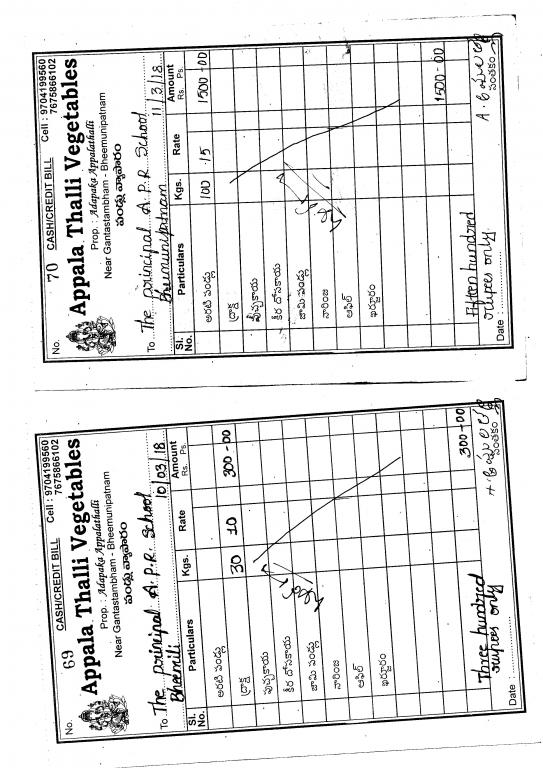 No. 70 CASH/CREDIT BILL Cell : 9704199560
7675866102
Appala Thalli Vegetables
Prop. : Adapaka Appalathalli
Near Gantastambham - Bheemunipatnam
పండ్లు వ్యాపారం
To The principal A.P.R. School 11/3/18
Bheemunipatnam
Sl. No. Particulars Kgs. Rate Amount Rs. Ps.
అరటి పండ్లు 100 15 1500-00
ద్రాక్ష
పుచ్చకాయ
కీర దోసకాయ
జామి పండ్లు
నారింజ
ఆపిల్
ఖర్జూరం
1500-00
Fifteen hundred
rupees only.
Date :
సంతకం
No. 69 CASH/CREDIT BILL Cell : 9704199560
7675866102
Appala Thalli Vegetables
Prop. : Adapaka Appalathalli
Near Gantastambham - Bheemunipatnam
పండ్లు వ్యాపారం
To The principal A.P.R. School 10/03/18
Bheemili
Sl. No. Particulars Kgs. Rate Amount Rs. Ps.
అరటి పండ్లు
ద్రాక్ష 30 10 300-00
పుచ్చకాయ
కీర దోసకాయ
జామి పండ్లు
నారింజ
ఆపిల్
ఖర్జూరం
300-00
Three hundred
rupees only
Date :
సంతకం